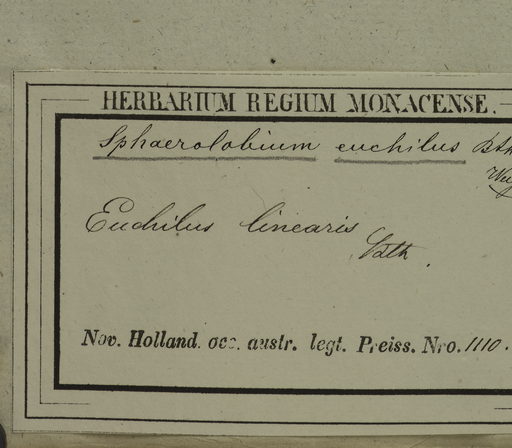 HERBARIUM REGIUM MONACENSE.
Sphaerolobium euchilus
Euchilus linearis
Nov. Holland. occ. austr. legt. Preiss. Nro. 1110.